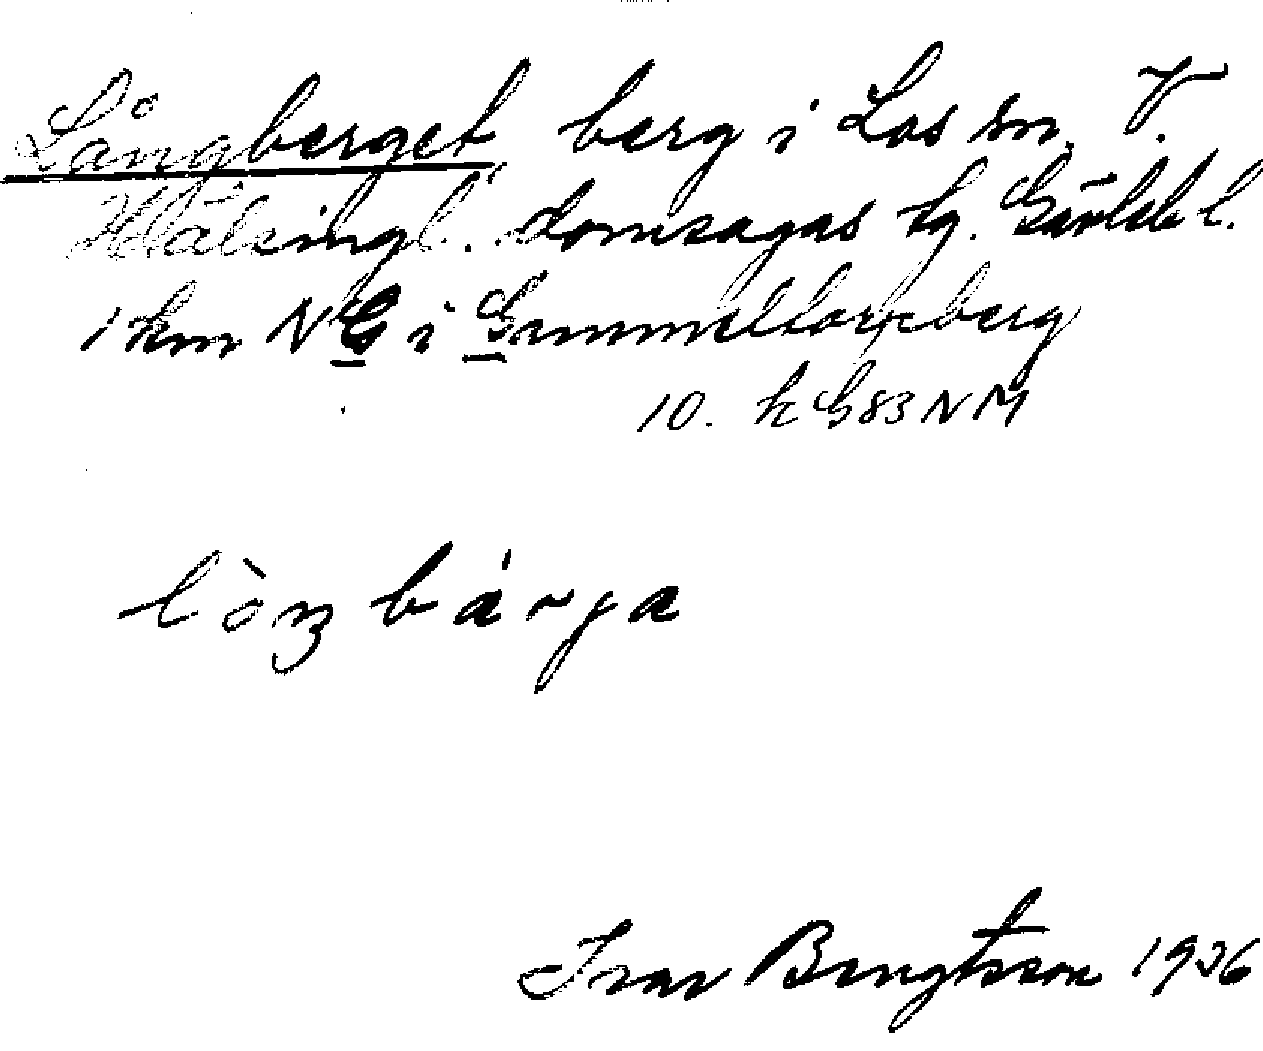 Långberget, berg i Los sn. V.
Hälsingl. domsagas tg. Gävleb l.
1 km NG i Gammeltorpsberg
10. k G83NM
lòŋ bárja
Ivar Bengtsson 1936